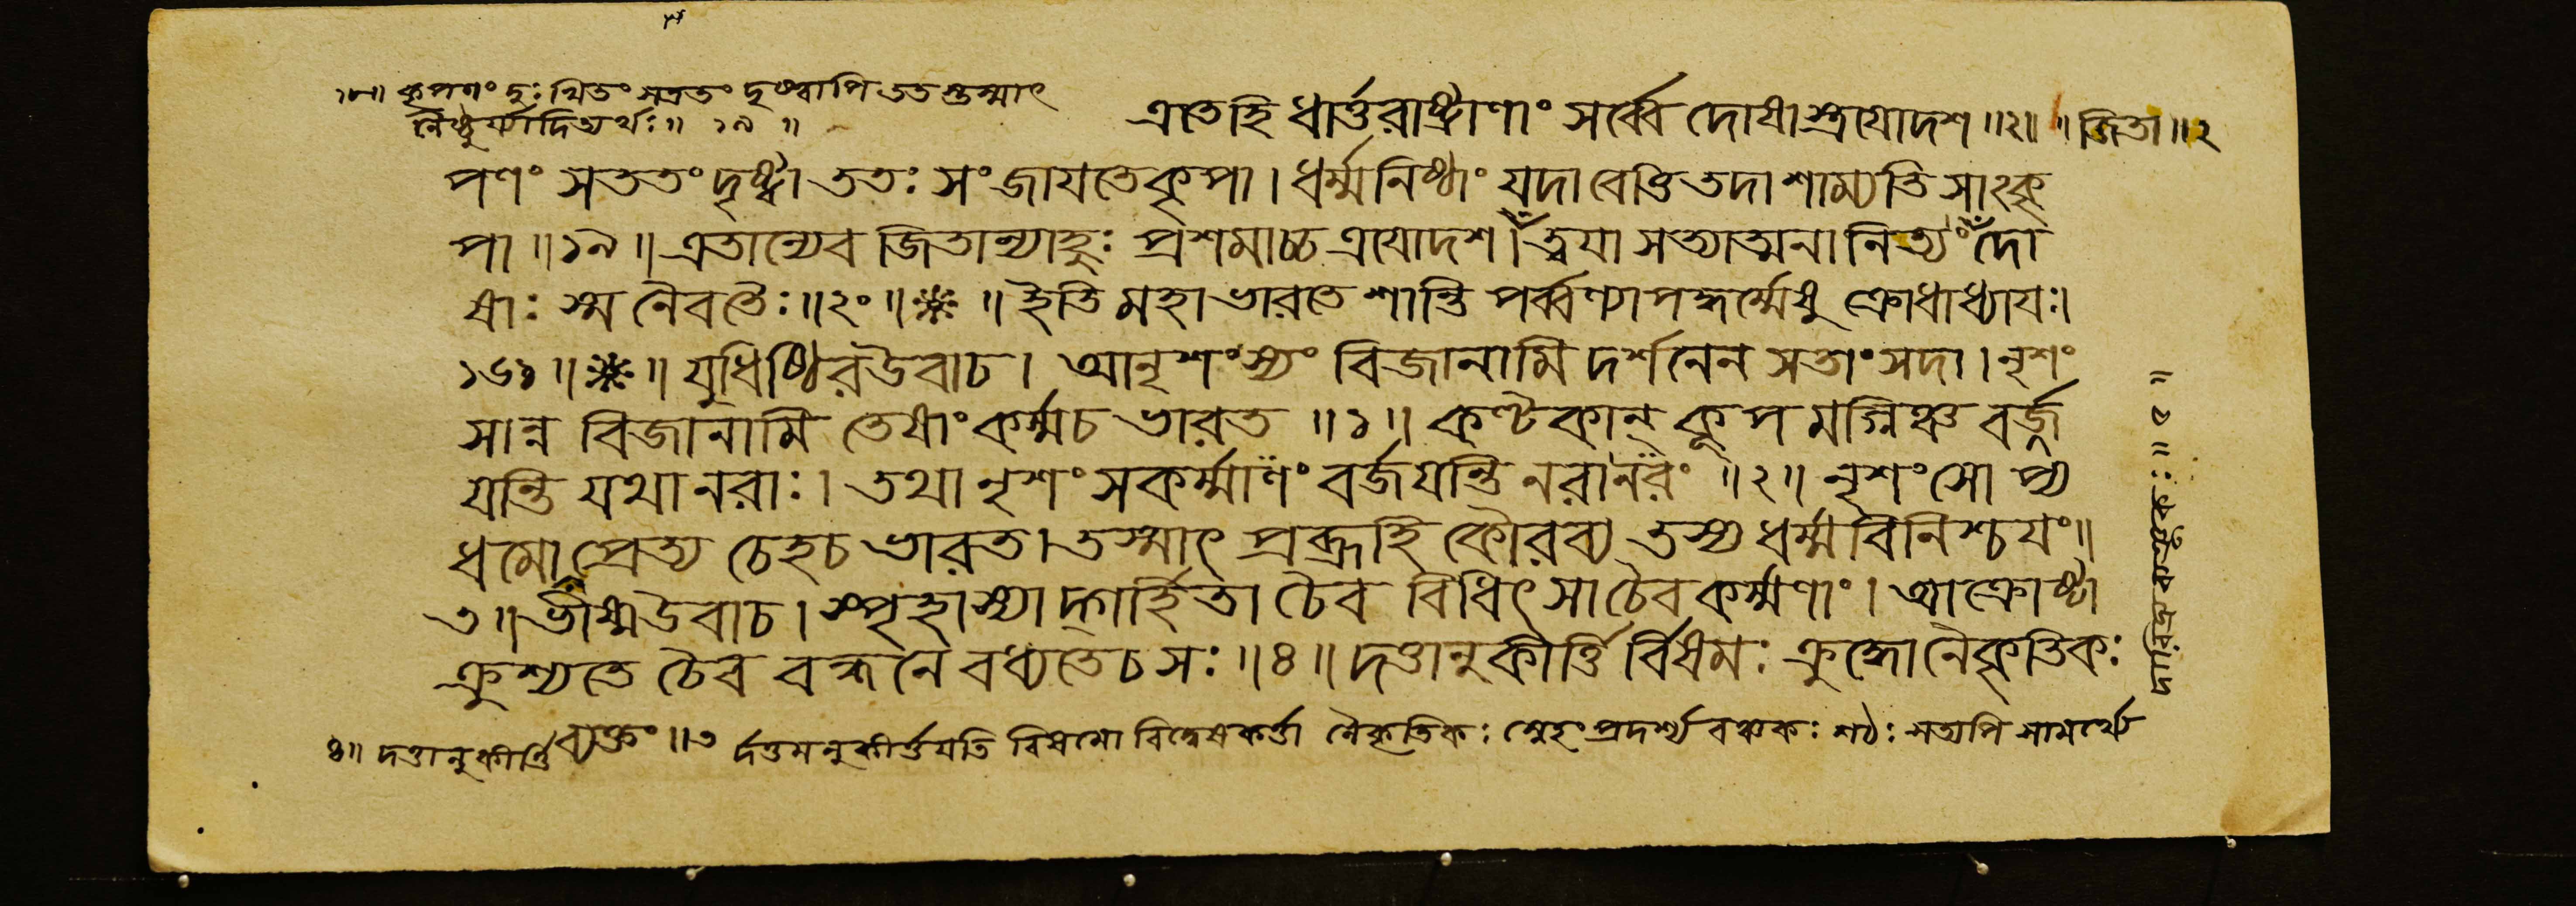 ১৮॥ কৃপণং দুঃখিতং সততং দৃষ্ট্বাপি ততস্তস্মাৎ
নৈষ্ঠুর্য্যাদিত্যর্থঃ॥ ১৯ ॥
এতেহি ধার্ত্তরাষ্ট্রাণাং সর্ব্বে দোষাস্ত্রয়োদশ॥২॥ ॥জিতা॥২
পণং সততং দৃষ্ট্বা ততঃ সংজায়তেকৃপা। ধর্ম্মনিষ্ঠাং যদাবেত্তিতদাশাম্যতি সাংকৃ
পা॥১৯॥এতান্যেব জিতান্যাহুঃ প্রশমাচ্চ ত্রয়োদশ। ত্বয়া সত্যাত্মনা নিত্যং দো
ষাঃ স্ম নৈবতৈঃ॥২০॥❋॥ইতি মহাভারতে শান্তি পর্ব্বণ্যাপদ্ধর্ম্মেষু ক্রোধাধ্যায়ঃ।
১৬১॥❋॥যুধিষ্ঠিরউবাচ। আনৃশংস্যং বিজানামি দর্শনেন সতাংসদা।নৃশং
সান্ন বিজানামি তেষাংকর্ম্মচ ভারত॥১॥কণ্টকান্ কূপমগ্নিঞ্চ বর্জ্জ
য়ন্তি যথা নরাঃ। তথা নৃশংসকর্ম্মাণং বর্জয়ন্তি নরানরং॥২॥নৃশংসো প্য
ধমো প্রেত্য চেহচ ভারত।তস্মাৎ প্রব্রূহি কৌরব্য তস্য ধর্ম্মবিনিশ্চয়ং॥
৩॥ভীষ্মউবাচ।স্পৃহাস্যাদ্গর্হিতা চৈব বিধিৎসাচৈবকর্ম্মণাং।আক্রোষ্টা
ক্রুশ্যতে চৈব বন্ধনে বধ্যতেচসঃ॥৪॥দত্তানুকীর্ত্তির্বিষমঃ ক্ষুদ্রোনৈকৃতিকঃ
৪॥ দত্তানুকীর্ত্তি ব্যক্তং॥৩ র্দত্তমনুকীর্ত্তয়তি বিষমো বিদ্বেষকর্ত্তা নৈকৃতিকঃ স্নেহংপ্রদর্শ্য বঞ্চকঃ শঠঃ সত্যপি সামর্থ্যে